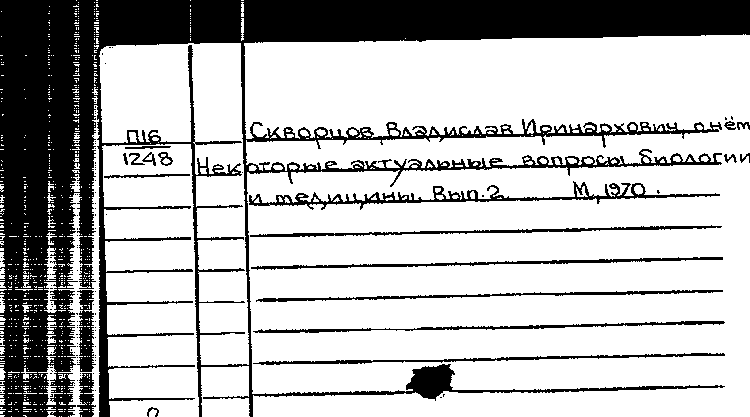 П16
1248
Скворцов, Владислав Иринархович, о нём
Некоторые актуальные вопросы биологии
и медицины. Вып. 2. М., 1970.